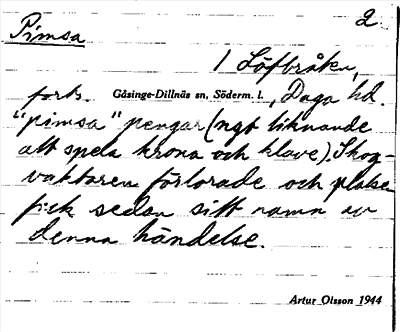 2.
Pimsa
I Löfbråten,
forts. Gåsinge-Dillnäs sn, Söderm. l., Daga hd.
"pimsa" pengar (ngt liknande
att spela krona och klave). Skog-
vaktaren förlorade och platsen
fick sedan sitt namn av
denna händelse.
Artur Olsson 1944